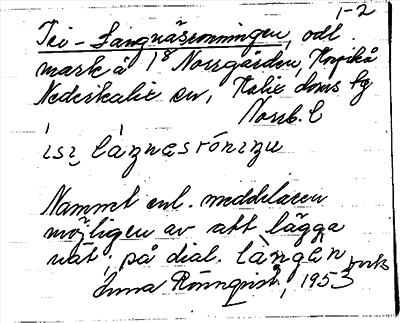 1-2
Isi-Långnäsröningen, odl.
mark å 1⁸ Norrgården, Korpikå
Nederkalix sn, Kalix doms lg
Norrb. l
isi̩ lánnasróninn
Namnet enl. meddelaren
möjligen av att lägga
nät, på dial. làngàn
Anna Rönnqvist, 1953